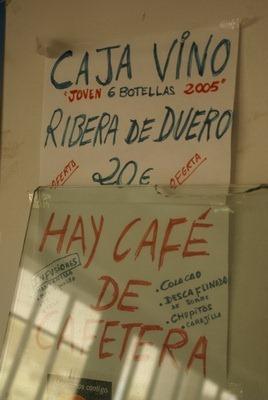 CAJA VINO
"JOVEN 6 BOTELLAS 2005"
RIBERA DE DUERO
OFERTA 20€ OFERTA
HAY CAFÉ
INFUSIONES
DE
CAFETERA
• COLACAO
• DESCAFEINADO
DE SOBRE
• CHUPITOS
• CARAJILLO
contigo.